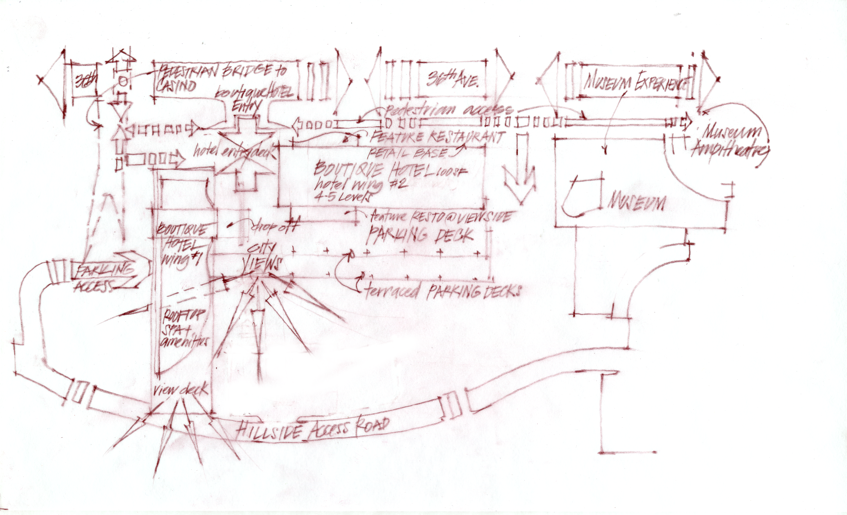 30th
PEDESTRIAN BRIDGE to
CASINO
boutique HOTEL
ENTRY
36th AVE.
MUSEUM EXPERIENCE
pedestrian access
MUSEUM
AMPITHEATRE
hotel entry deck
FEATURE RESTAURANT
RETAIL BASE
BOUTIQUE HOTEL
hotel wing #2
4-5 Levels
MUSEUM
BOUTIQUE
HOTEL
wing #1
drop off
feature RESTO @ VIEWSIDE
PARKING DECK
city
VIEWS
PARKING
ACCESS
terraced PARKING DECKS
ROOFTOP
SPA +
amenities
view deck
HILLSIDE ACCESS ROAD